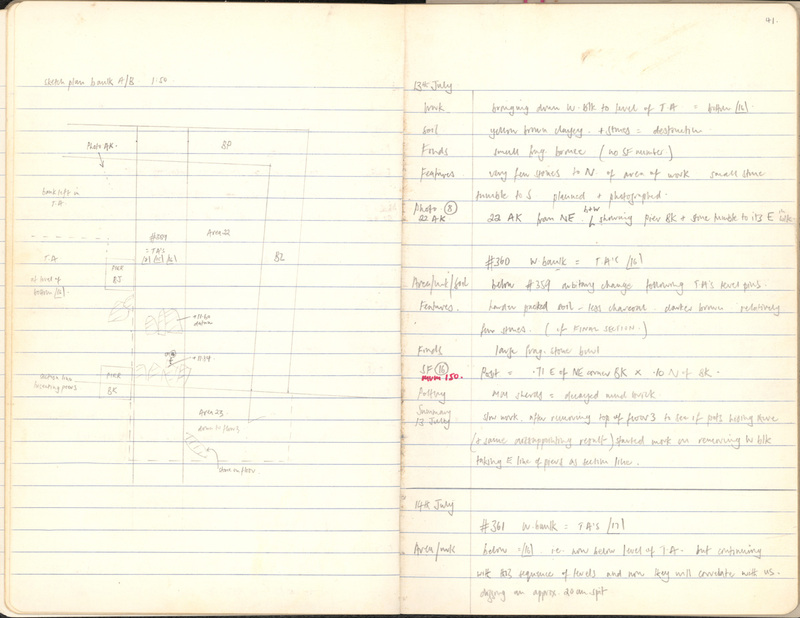 Sketch plan baulk A/B 1:50.
Photo AK.
BP
baulk left in
T.A.
#359
= TA's
/14/ /15/ /16/
Area 22
BL
T.A
PIER
BJ
W. limit of
bottom /16/
PIER
BK
Area 23
41.
13th July
Work bringing down W. blk to level of T.A = bottom /16/.
Soil yellow brown clayey. + stones = destruction
Finds small frag. bronze (no SF number)
Features very few stones to N. of area of work small stone
tumble to S planned + photographed.
Photo (8)
22 AK 22 AK from NE b+w showing pier BK + stone tumble to its E
#360 W. baulk = TA's /16/
Area/unit/soil below #359 arbitrary change following TA's level pins.
Features. harder packed soil - less charcoal. darker brown. relatively
few stones. (cf Final section.)
Finds large frag. stone bowl
SF (16) Posit = .71 E of NE corner BK x .10 N of BK.
Pottery sherds = decayed mud brick.
Summary
13 July slow work. after removing top of floor 3 to see if pots
(+ some disappointing result) started work on removing W blk
taking E line of piers as section line.
14th July
#361 W. baulk = TA's /17/
Area/unit below /16/. i.e. now below level of T.A. but continuing
with his sequence of levels and now they will correlate with us.
digging an approx. 20 cm spit